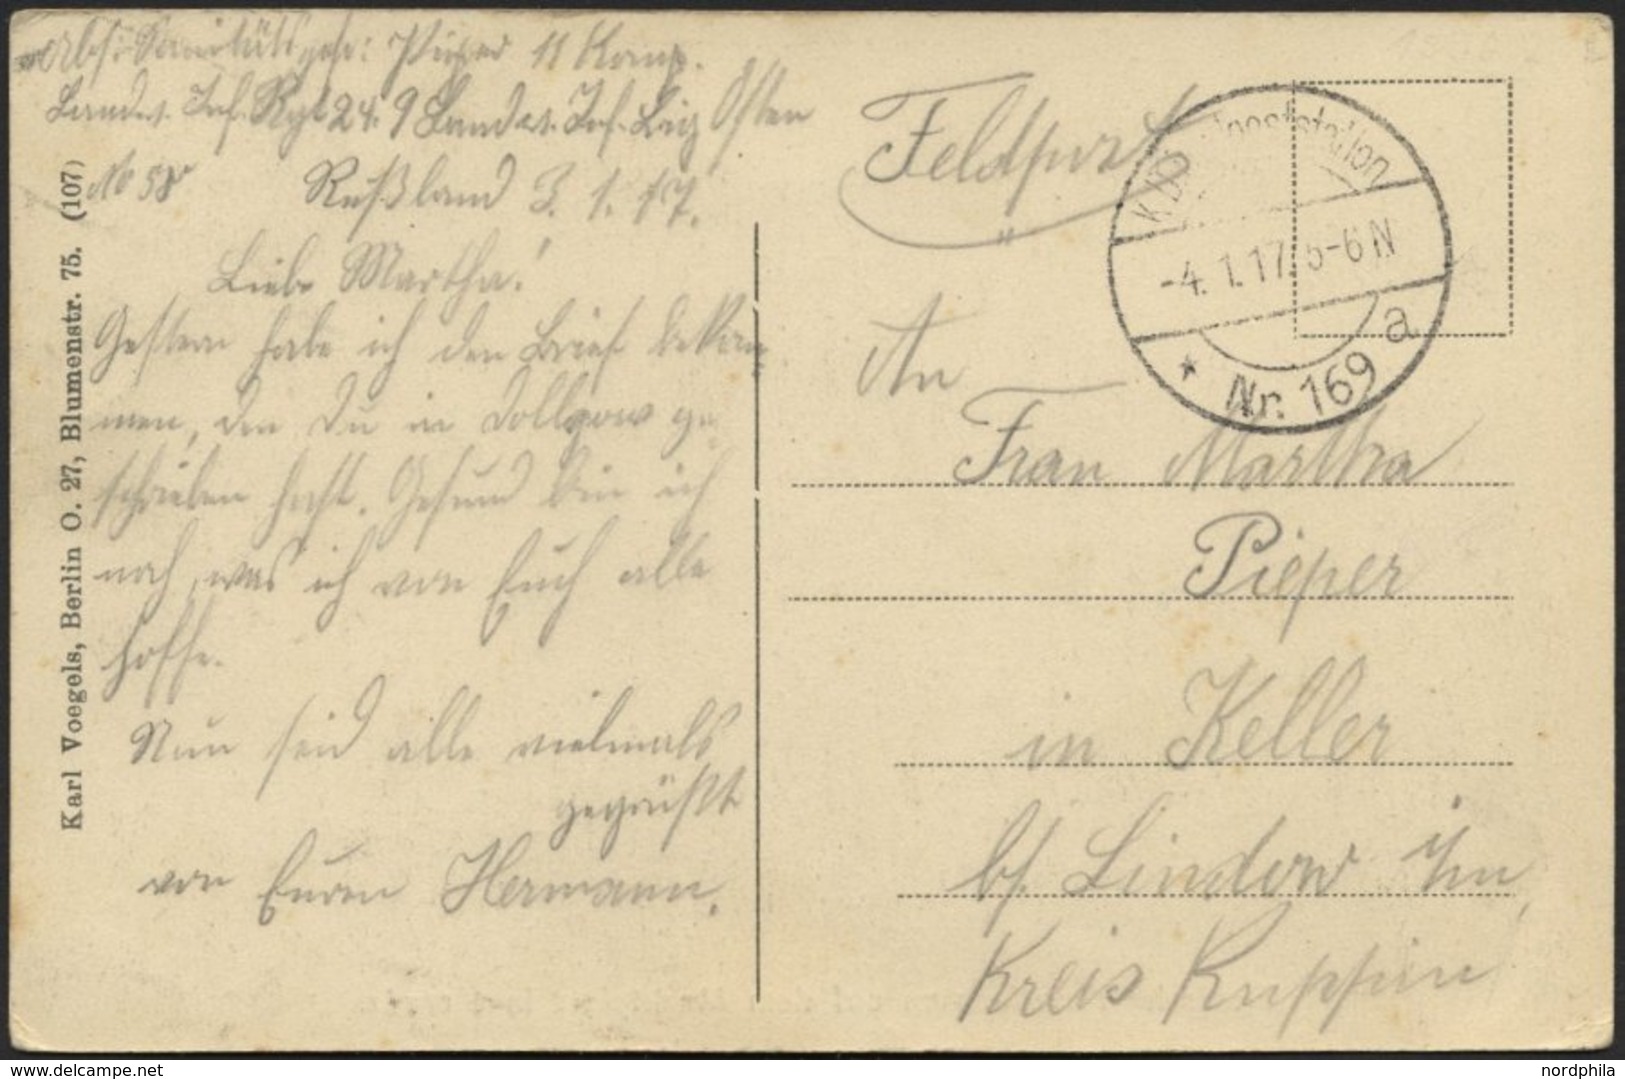 Abs. Sanitätsgefr: Pieper 11 Komp.
Landw. Inf. Rgt 24. 9 Landw. Inf. Brig Osten
No 58 Rußland 3. 1. 17.
Liebe Martha!
Gestern habe ich den Brief bekom
men, den Du in Dollgow ge
schrieben hast. Gesund bin ich
noch, was ich von Euch alle
hoffe.
Nun seid alle vielmals
gegrüßt
von Euren Hermann.
Karl Voegels, Berlin O. 27, Blumenstr. 75. (107)
Feldpost
poststation
-4. 1. 17. 5-6 N
* Nr. 169 a
An
Frau Martha
Pieper
in Keller
b/. Lindow i/m
Kreis Ruppin
nordphila